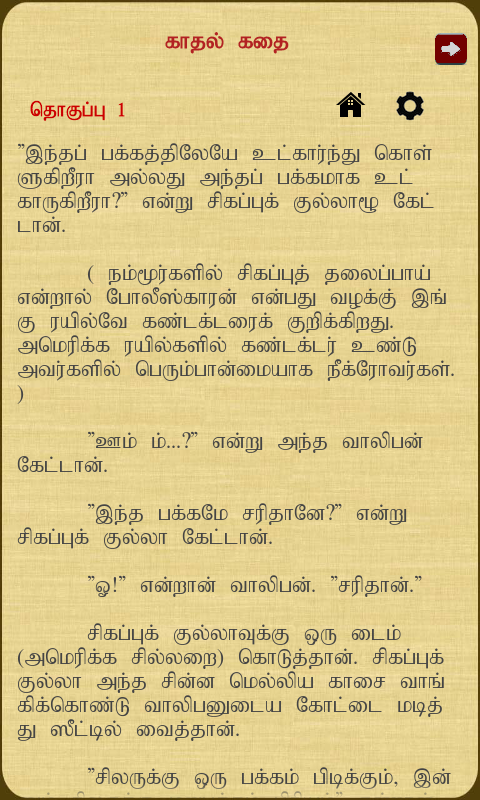 காதல் கதை
தொகுப்பு 1
”இந்தப் பக்கத்திலேயே உட்கார்ந்து கொள்
ளுகிறீரா அல்லது அந்தப் பக்கமாக உட்
காருகிறீரா?” என்று சிகப்புக் குல்லாமூ கேட்
டான்.
( நம்மூர்களில் சிகப்புத் தலைப்பாய்
என்றால் போலீஸ்காரன் என்பது வழக்கு இங்
கு ரயில்வே கண்டக்டரைக் குறிக்கிறது.
அமெரிக்க ரயில்களில் கண்டக்டர் உண்டு
அவர்களில் பெரும்பான்மையாக நீக்ரோவர்கள்.
)
”ஊம் ம்...?” என்று அந்த வாலிபன்
கேட்டான்.
”இந்த பக்கமே சரிதானே?” என்று
சிகப்புக் குல்லா கேட்டான்.
”ஓ!” என்றான் வாலிபன். ”சரிதான்.”
சிகப்புக் குல்லாவுக்கு ஒரு டைம்
(அமெரிக்க சில்லறை) கொடுத்தான். சிகப்புக்
குல்லா அந்த சின்ன மெல்லிய காசை வாங்
கிக்கொண்டு வாலிபனுடைய கோட்டை மடித்
து ஸீட்டில் வைத்தான்.
”சிலருக்கு ஒரு பக்கம் பிடிக்கும், இன்